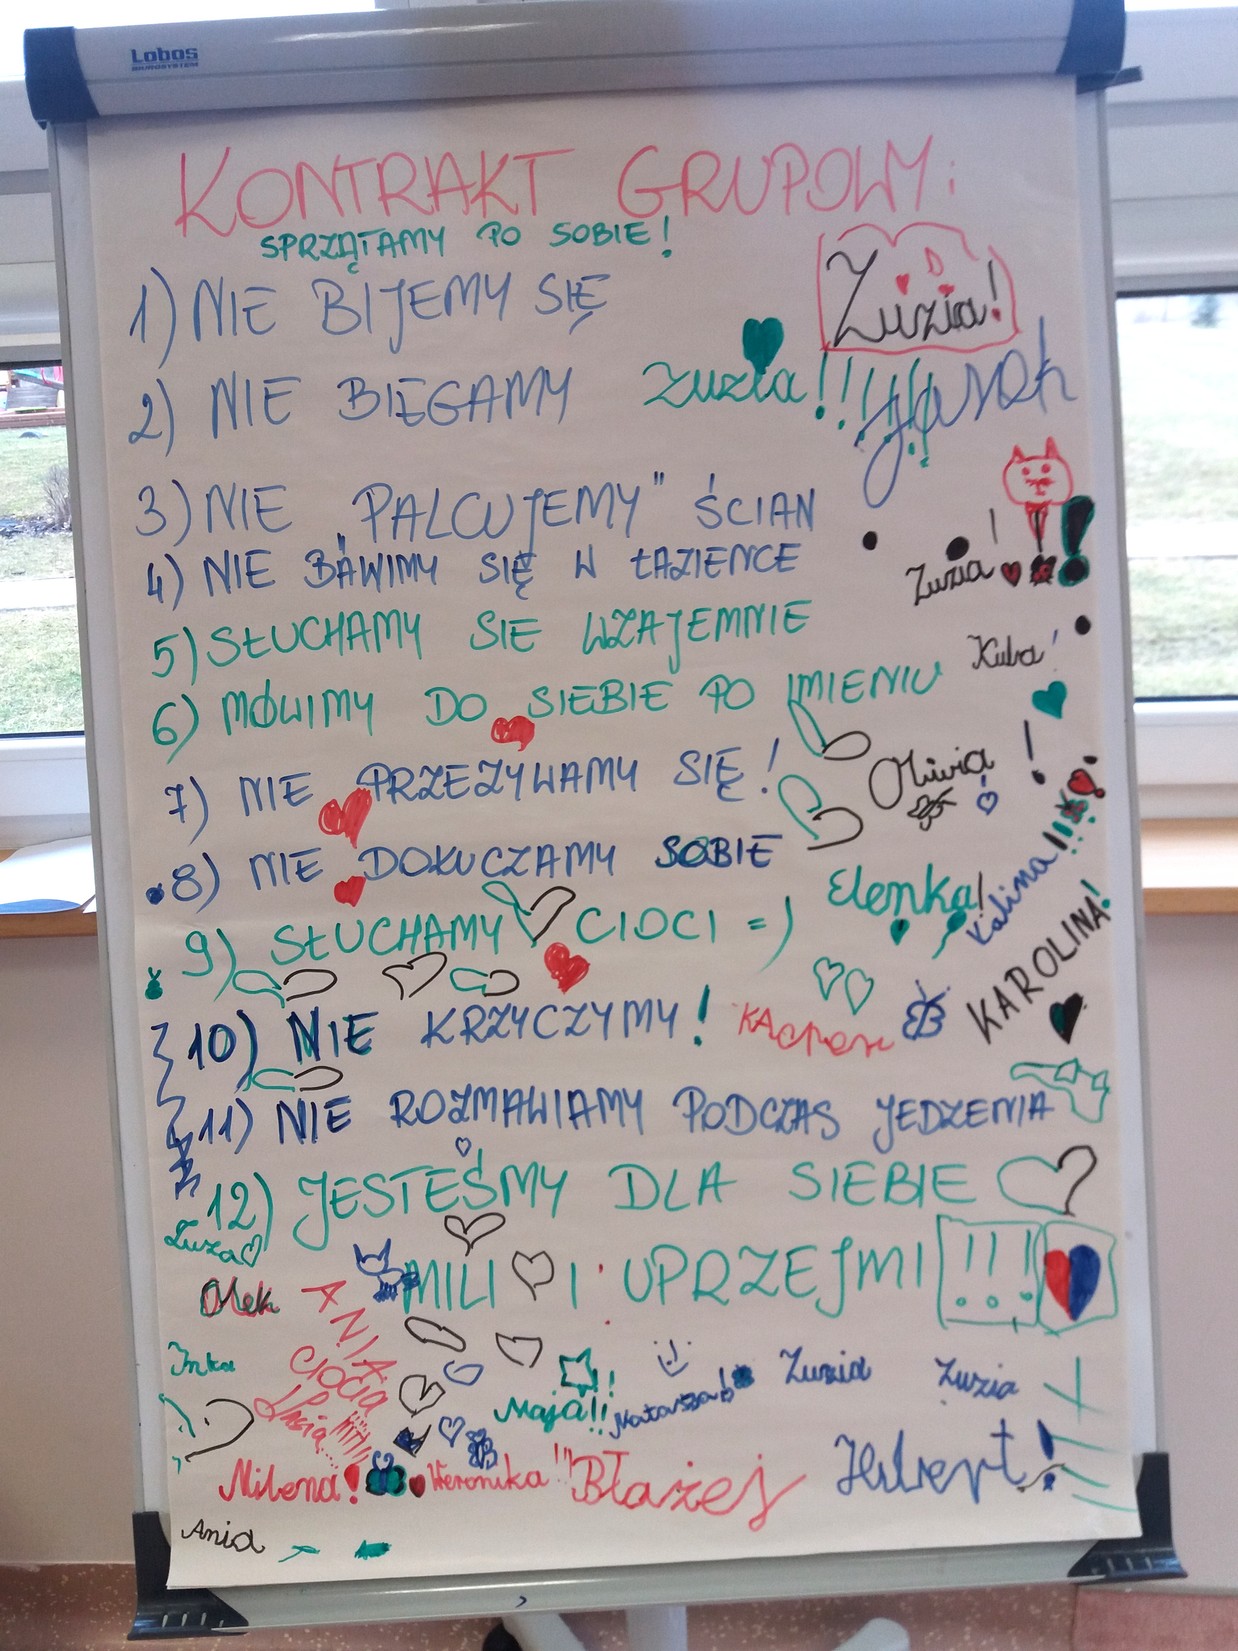 Lobos
BIUROSYSTEM
KONTRAKT GRUPOWY:
SPRZĄTAMY PO SOBIE!
Zuzia!
1) NIE BIJEMY SIĘ
2) NIE BIĘGAMY
Zuzia!!!!!!
Jarek
3) NIE „PALCUJEMY” ŚCIAN
4) NIE BAWIMY SIĘ W ŁAZIENCE
Zuzia!
5) SŁUCHAMY SIĘ WZAJEMNIE
Kuba!
6) MÓWIMY DO SIEBIE PO IMIENIU
7) NIE PRZEZYWAMY SIĘ!
Oliwia!
8) NIE DOKUCZAMY SOBIE
Elenka!
Kalina!!!
KAROLINA!
9) SŁUCHAMY CIOCI =)
10) NIE KRZYCZYMY!
KAcper
11) NIE ROZMAWIAMY PODCZAS JEDZENIA
12) JESTEŚMY DLA SIEBIE
MILI I UPRZEJMI !!!
Zuza
Olek
ANIA
CIOCIA
Inka
Maja!!
Natasza!
Zuzia
Zuzia
Milena!
Weronika!!!
Błażej
Hubert!
Ania